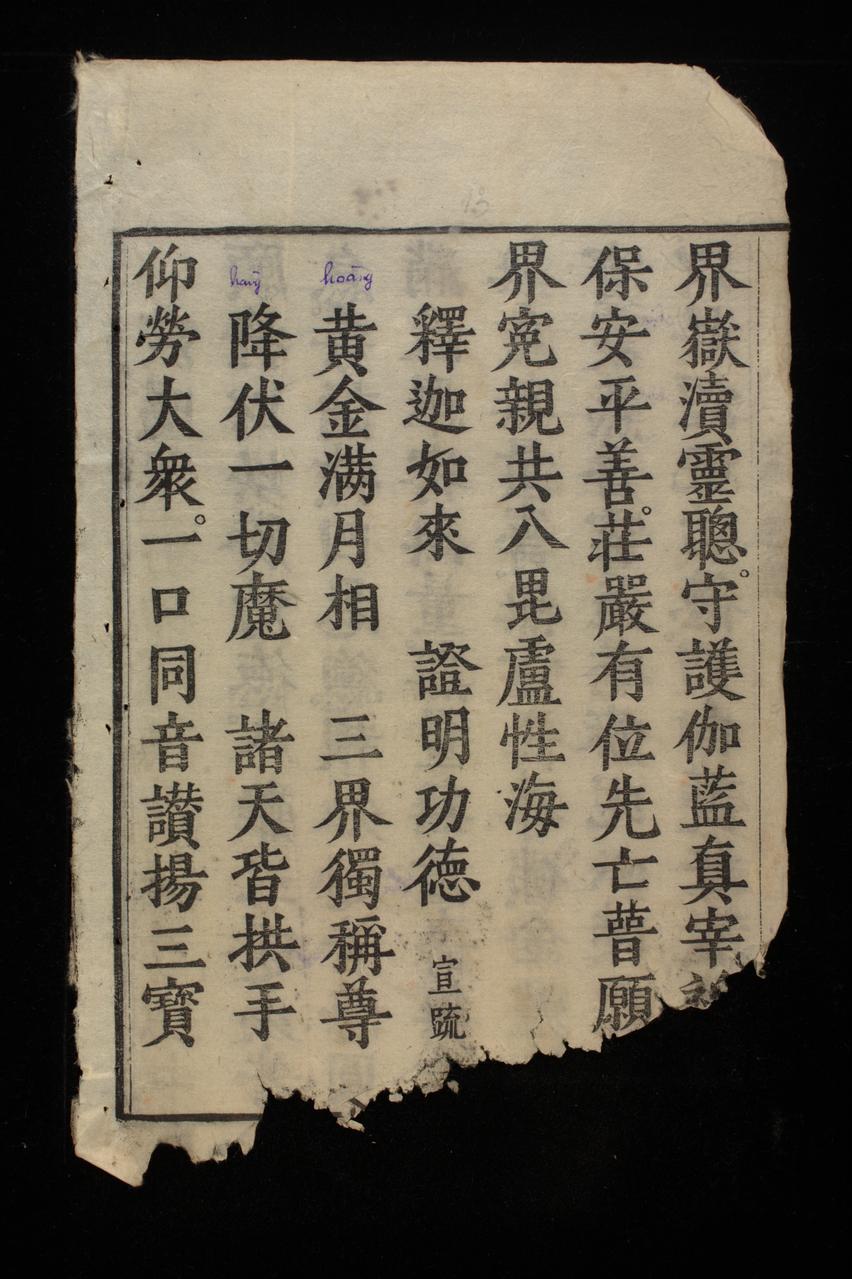 界嶽瀆靈聰。守護伽藍真宰
保安平善。莊嚴有位先亡普願
界寃親共入毘盧性海
釋迦如來 證明功德 宣疏
hoàng
黄金満月相 三界獨稱尊
hàng
降伏一切魔 諸天皆拱手
仰勞大衆。一口同音讃揚三寳